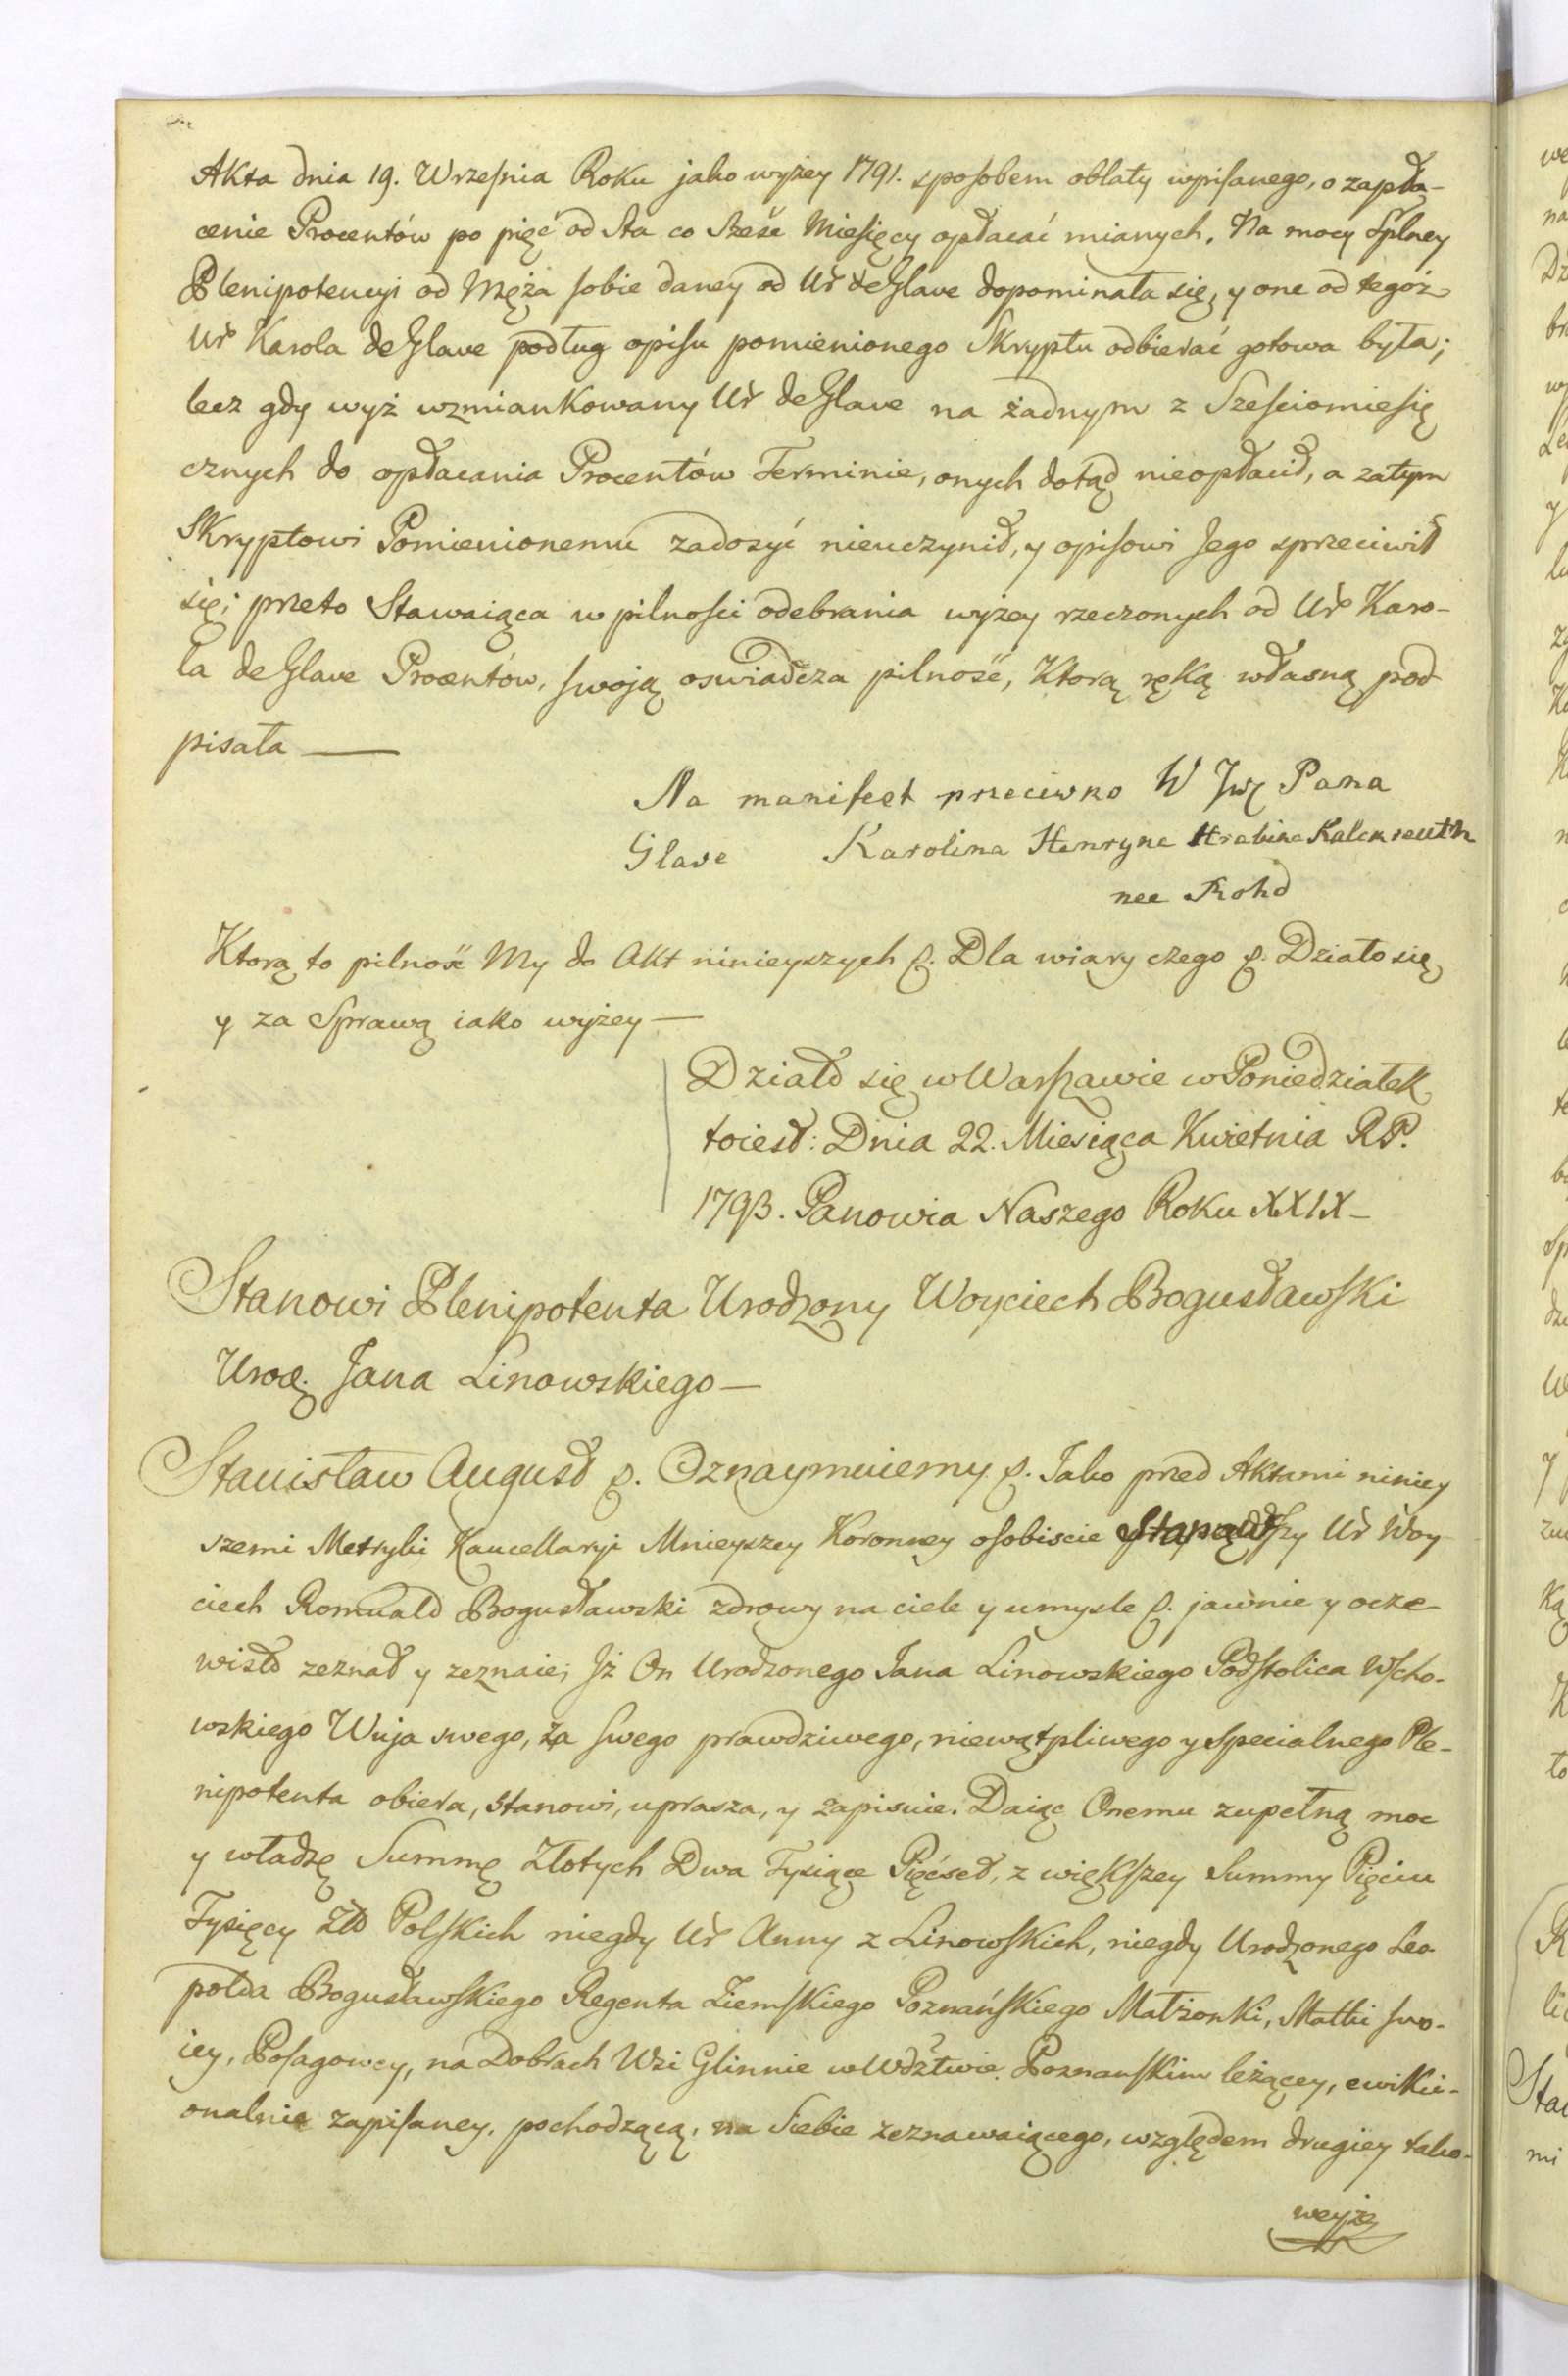 Akta dnia 19. Września Roku jako wyżey 1791. sposobem oblaty wpisanego, o zapła-
cenie Procentów po pięć od sta co sześć Miesięcy opłacać mianych. Na mocy Splney
Plenipotencyi od Męża sobie daney od Ur deGlave dopominała się, y one od tegoż
Ur Karola deGlave podług opisu pomienionego Skryptu odbierać gotowa była;
lecz gdy wyż wzmiankowany Ur deGlave na żadnym z Sześciomiesię
cznych do opłacania Procentów Terminie, onych dotąd nieopłacił, a zatym
Skryptowi Pomienionemu zadosyć nieuczynił, y opisowi Jego sprzeciwił
się; przeto Stawaiąca w pilności odebrania wyżey rzeczonych od Ur Karo-
la deGlave Procentów, swoją oswiadcza pilność, Ktorą ręką własną pod
pisała —
Na manifest przeciwko W Jwę Pana
Glave Karolina Henryne Hrabina Kalckreuth
nee Rohd
Ktorą to pilność My do Akt ninieyszych p. Dla wiary czego p. Działo się
y za Sprawą iako wyżey —
Działo się w Warszawie w Poniedziałek
toiest: Dnia 22. Miesiąca Kwietnia RP.
1793. Panowia Naszego Roku XXIX —
Stanowi Plenipotenta Urodzony Woyciech Bogusławski
Urod. Jana Linowskiego —
Stanisław August p. Oznaymuiemy p. Jako przed Aktami niniey
szemi Metryki Kancellaryi Mnieyszey Koronney osobiscie stanąwszy Ur Woy
ciech Romuald Bogusławski zdrowy na ciele y umysle p. jawnie y ocze
wisto zeznał y zeznaie; Jż On Urodzonego Jana Linowskiego Podstolica Wscho-
wskiego Wuja swego, za swego prawdziwego, niewątpliwego y specialnego Ple-
nipotenta obiera, stanowi, uprasza, y zapisuie. Daiąc Onemu zupełną moc
y władzę Summę Złotych Dwa Tysiące Pięćset, z większey Summy Pięciu
Tysięcy Zło Polskich niegdy Ur Anny z Linowskich, niegdy Urodzonego Leo
polda Bogusławskiego Regenta Ziemskiego Poznańskiego Małżonki, Matki swo-
iey, Posagowey, na Dobrach Wsi Glinnie w Wdztwie Poznanskim leżącey, ewikci-
onalnie zapisaney, pochodzącą, na Siebie zeznawaiącego, względem drugiey tako-
weyże